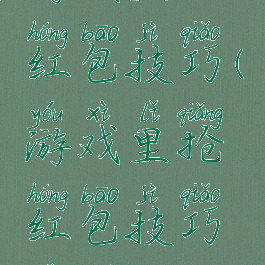 hóng bāo jì qiǎo
红包技巧(
yóu xì lǐ qiǎng
游戏里抢
hóng bāo jì qiǎo
红包技巧